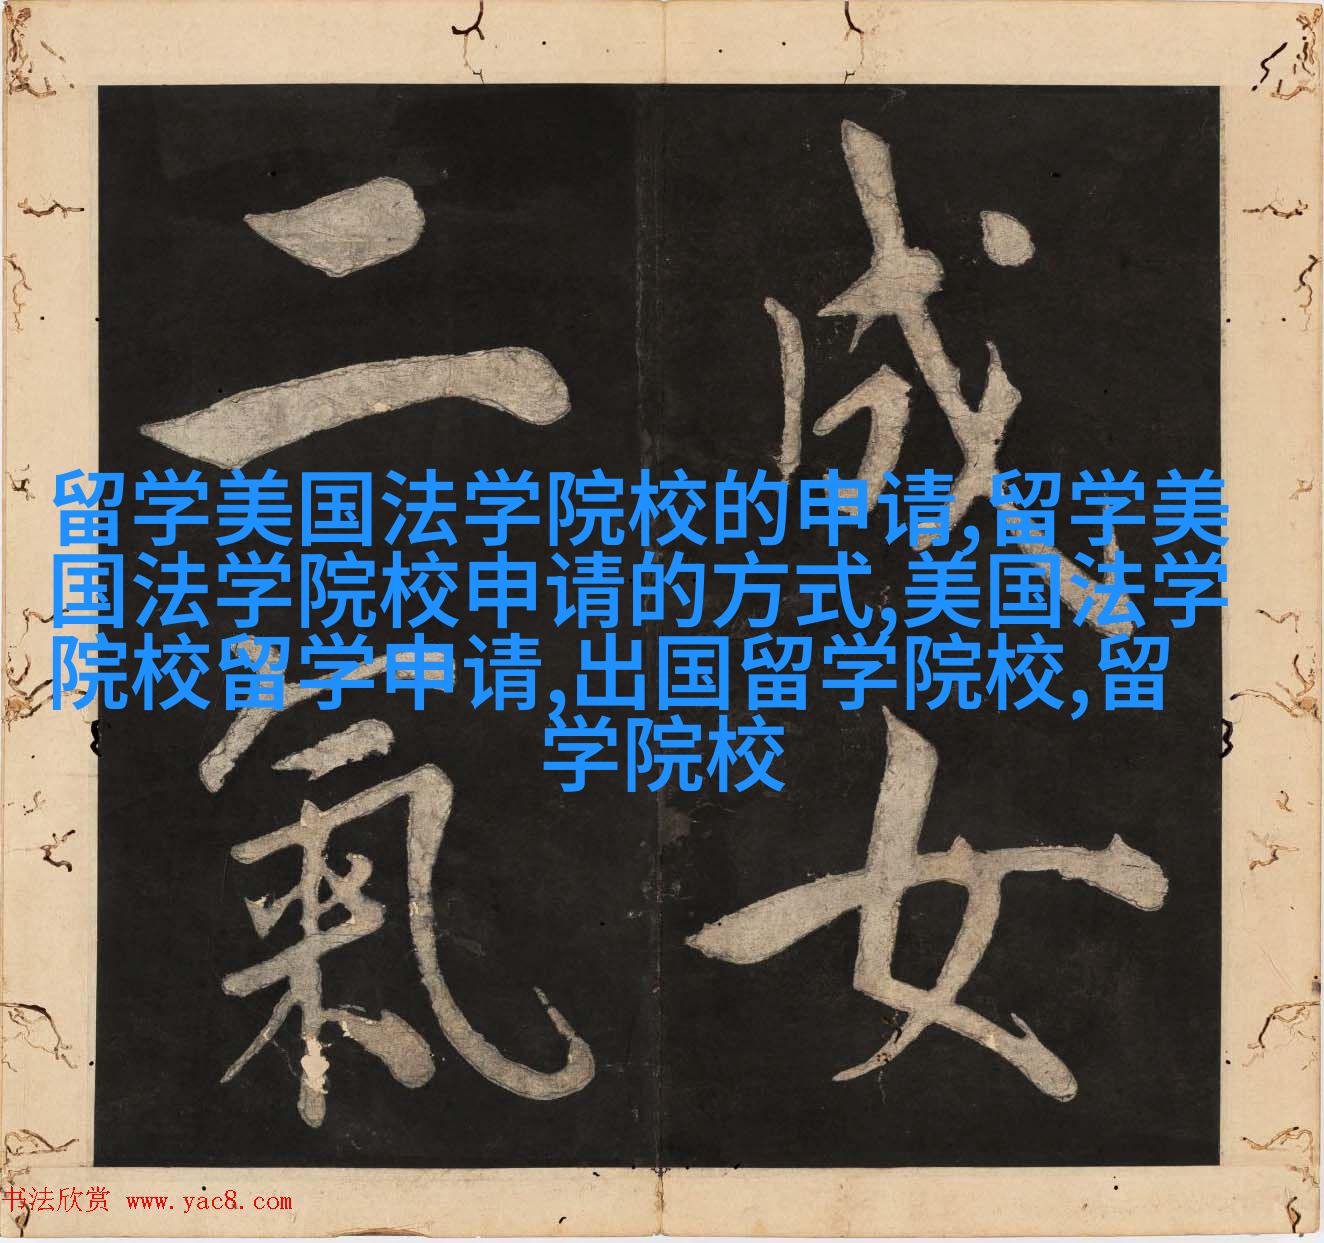 成女
二氣
留学美国法学院校的申请,留学美
国法学院校申请的方式,美国法学
院校留学申请,出国留学院校,留
学院校
书法欣赏 www.yac8.com